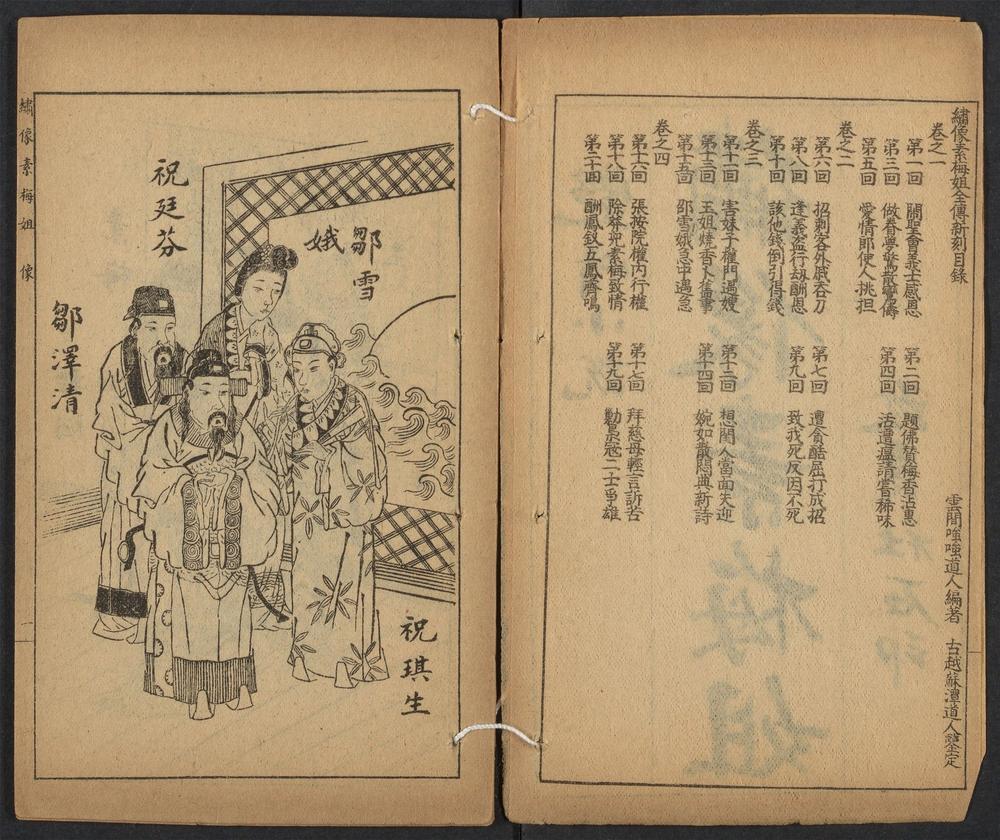 繡像素梅姐全傳新刻目錄
雲間嗤嗤道人編著　古越蘇潭道人鑒定
卷之一
第一回　關聖會義士感恩　第二回　題佛贊梅香沾惠
第三回　做春夢驚散鸞儔　第四回　活遭瘟請嘗稀味
第五回　愛情郎使人挑担
卷之二
第六回　招刺客外戚吞刀　第七回　遭貪酷屈打成招
第八回　逢義盗行刼酬恩　第九回　致我死反因不死
第十回　該他錢倒引得錢
卷之三
第十一回　害妹子權門遇嫂　第十二回　想閨人當面失迎
第十三回　玉姐燒香卜舊事　第十四回　婉如散悶興新詩
第十五回　邵雪娥急中遇急
卷之四
第十六回　張按院權內行權　第十七回　拜慈母輕言訴苦
第十八回　除莽兇素梅致情　第十九回　勦冦二士爭雄
第二十回　酬鳳釵五鳳齊鳴
鄒雪娥
祝廷芬
鄒澤清
祝琪生
繡像素梅姐　像